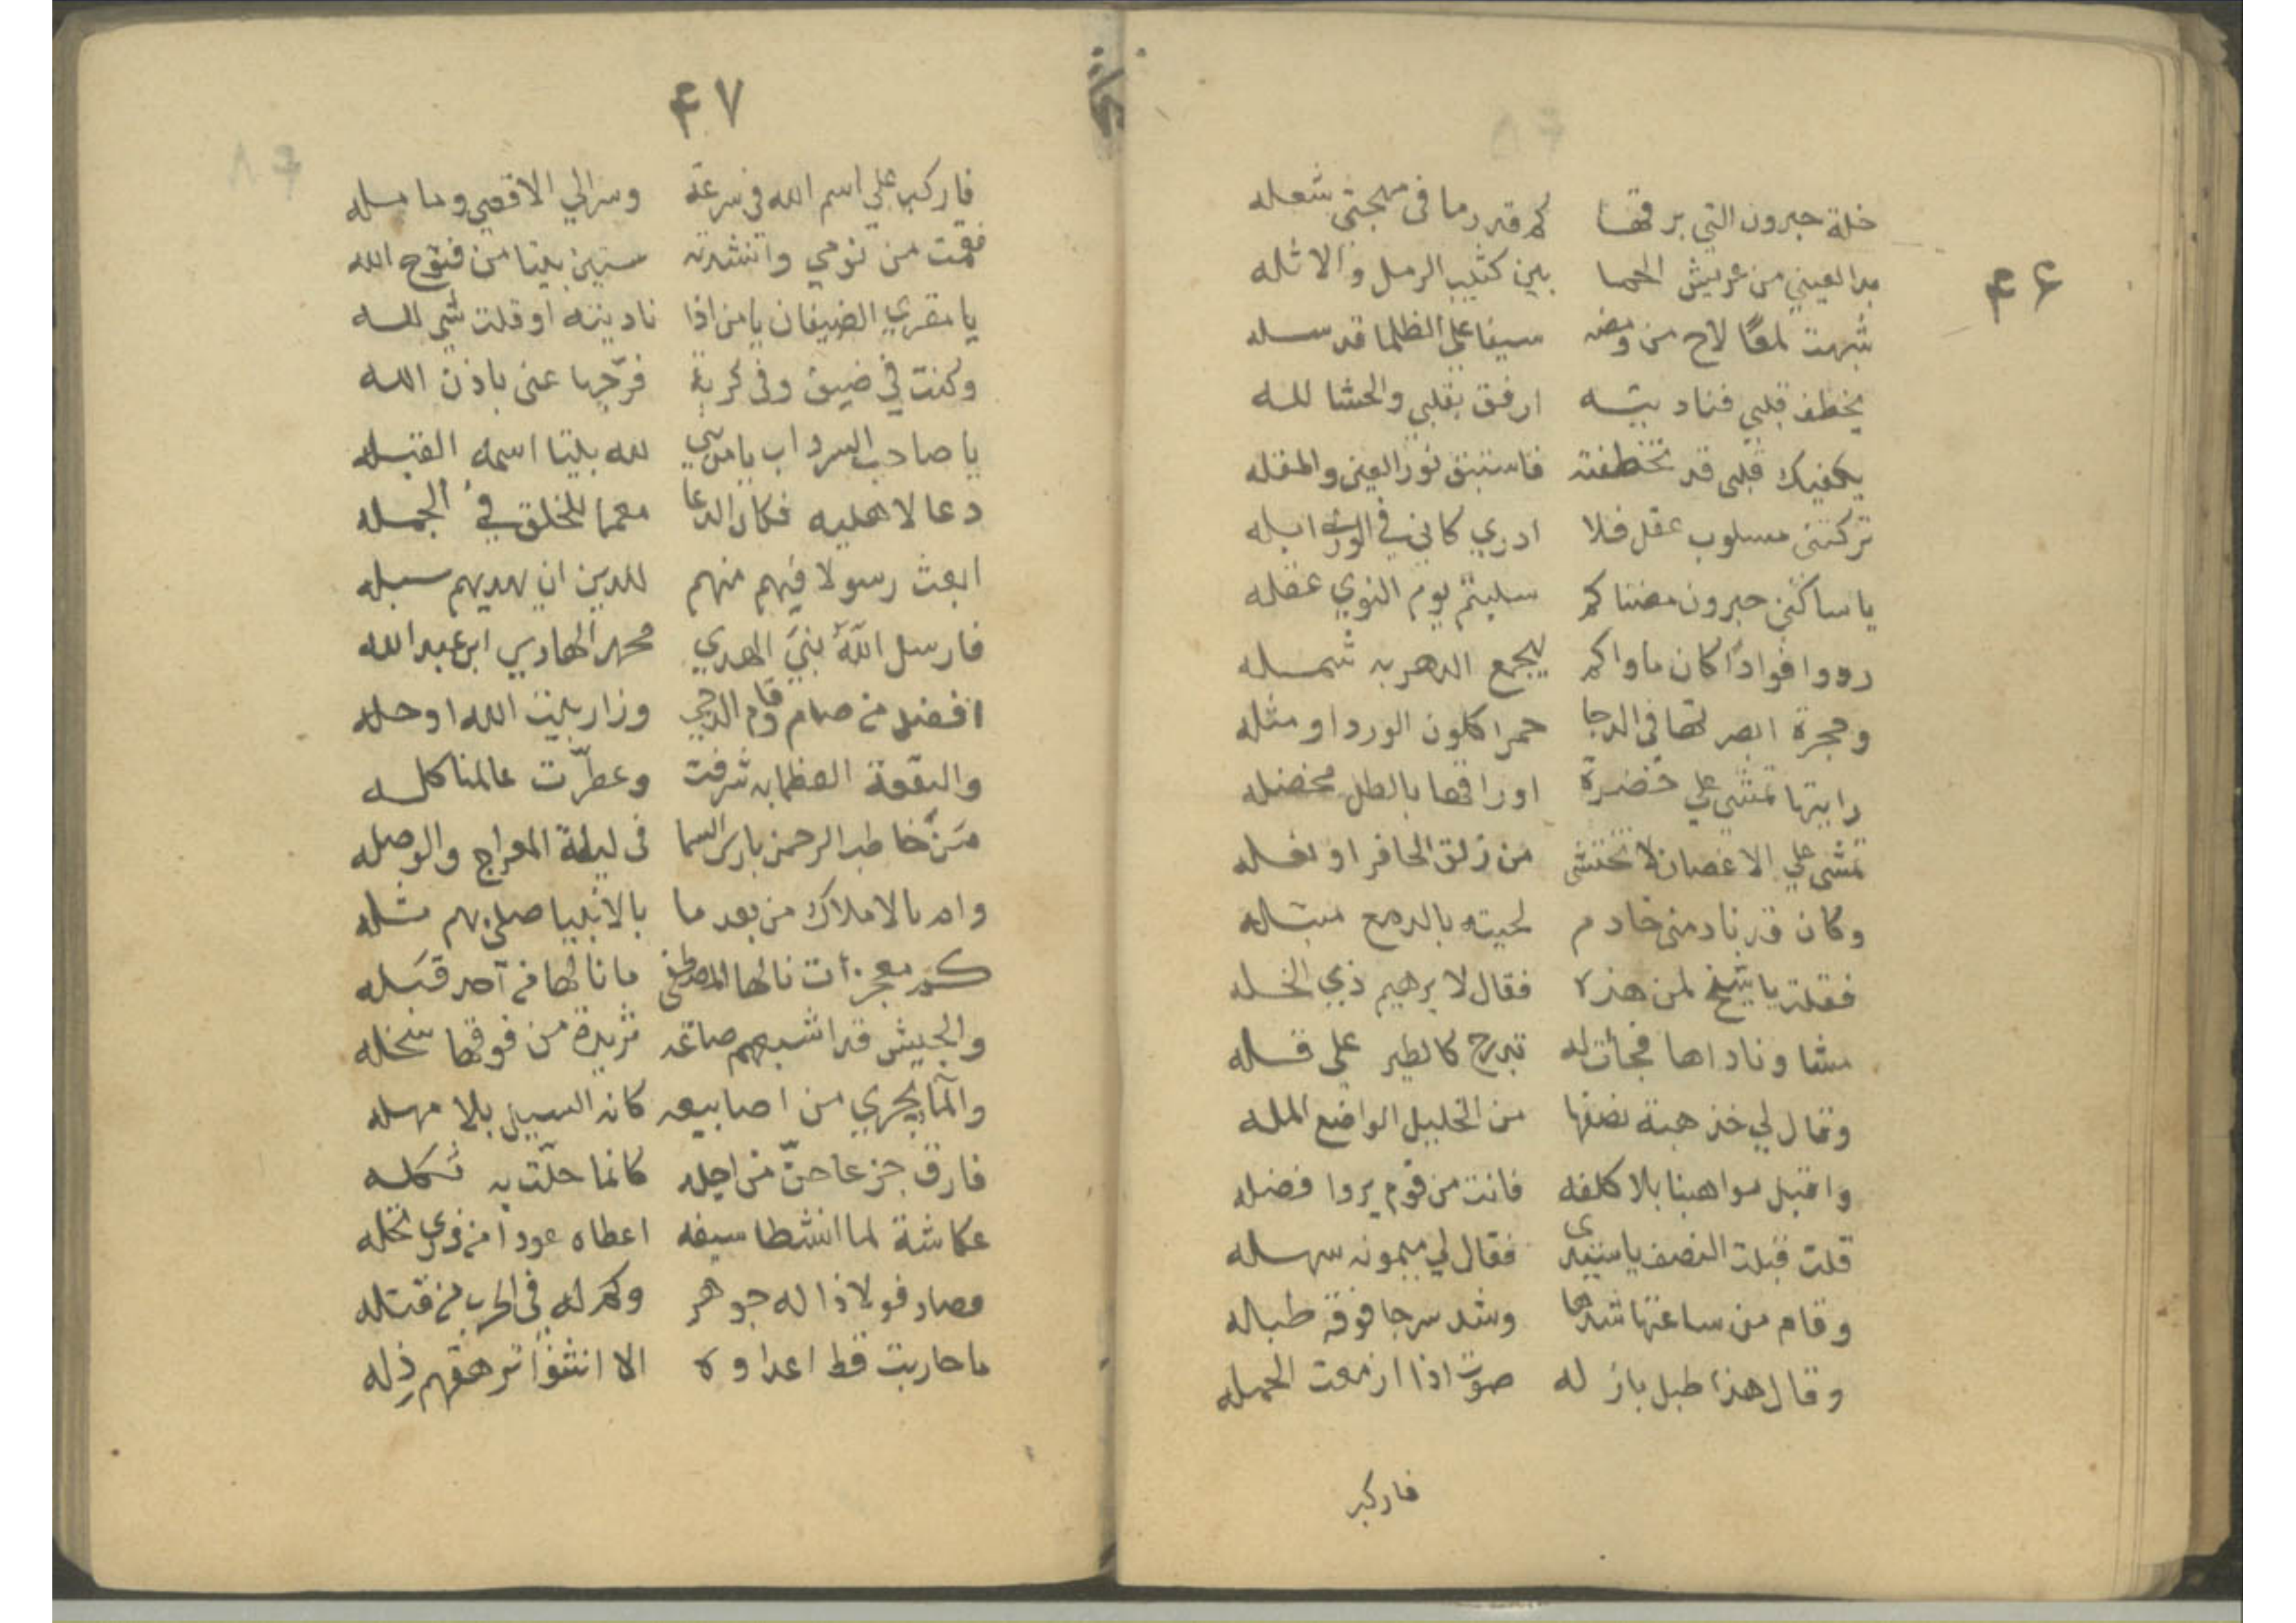 ٤٦
خلة حبرون التي برقها كم قد رما في مهجتي شعله
بدا لعيني من عريش الحما بين كثيب الرمل والاثله
شبهت لمعًا لاح من ومضه سيفا على الظلما قد سله
يخطف قلبي فناديته ارفق بقلبي والحشا لله
يكفيك قلبي قد تخطفته فاستبق نور العين والمقله
تركتني مسلوب عقل فلا ادري كاني في الورى ابله
يا ساكني حبرون مضناكم سلبتم يوم النوي عقله
ردوا فوادًا كان ماواكم ليجمع الدهر به شمله
وحجرة ابصرتها في الدجا حمرا كلون الورد او مثله
رايتها تمشي علي خضرة اوراقها بالطل مخضله
تمشي علي الاغصان لا تختشي من زلق الحافر او نعله
وكان قد نادمني خادم لحيته بالدمع مبتله
فقلت يا شيخ لمن هذه فقال لابرهيم ذي الخله
مشا وناداها فجأت له تدرج كالطير على قله
وقال لي خذ هبة نصفها من الخليل الواضع المله
واقبل مواهبنا بلا كلفه فانت من قوم يروا فضله
قلت قبلت النصف يا سيدى فقال لي ميمونه سهله
وقام من ساعتها شدها وشد سرجا فوقه طبله
وقال هذا طبل باز له صوت اذا ازمعت الحمله
فاركب
٤٧
فاركب علي اسم الله في سرعة وسر الي الاقصي وما مسله
فقمت من نومي وانشدته ستين بيتا من فتوح الله
يا مقري الضيفان يا من اذا ناديته او قلت شي لله
وكنت في ضيق وفي كربة فرّجها عني باذن الله
يا صاحب السرداب يا من لله بيتا اسمه القبله
دعا لاهليه فكان الدعا معما للخلق في الجمله
ابعث رسولا فيهم منهم للدين ان يهديهم سبله
فارسل الله نبيَّ الهدي محمد الهادي ابن عبد الله
افضل من صام وقام الدجي وزار بيت الله او حله
والبقعة العظما به شرفت وعطرّت عالمنا كله
مَنْ خاطب الرحمن باري السما في ليلة المعراج والوصله
وام بالاملاك من بعد ما بالانبيا صلى بهم مثله
كم معجزات نالها المصطفى ما نالها من احد قبَله
والجيش قد اشبعهم صاعه ثريدة من فوقها سخله
والمآ يجري من اصابيعه كانه السيل بلا مهله
فارق جزعا حنّ من اجله كانما حلّت به ثكله
عكاشة لما انشطا سيفه اعطاه عودا من ذري نخله
فصار فولاذا له جوهر وكم له في الحرب من قتله
ما حاربت قط اعداوه الا انثنوا ترهقهم ذله